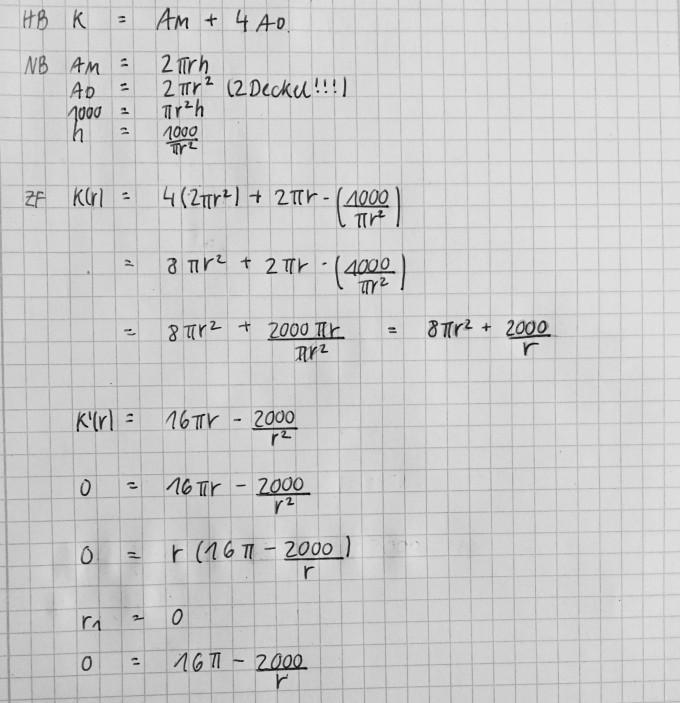 HB K = AM + 4 AD.
NB AM = 2πrh
AD = 2πr² (2 Deckel!!!)
1000 = πr²h
h = 1000/πr²
ZF K(r) = 4(2πr²) + 2πr · (1000/πr²)
= 8πr² + 2πr · (1000/πr²)
= 8πr² + 2000πr/πr² = 8πr² + 2000/r
K'(r) = 16πr - 2000/r²
0 = 16πr - 2000/r²
0 = r(16π - 2000/r)
r₁ = 0
0 = 16π - 2000/r